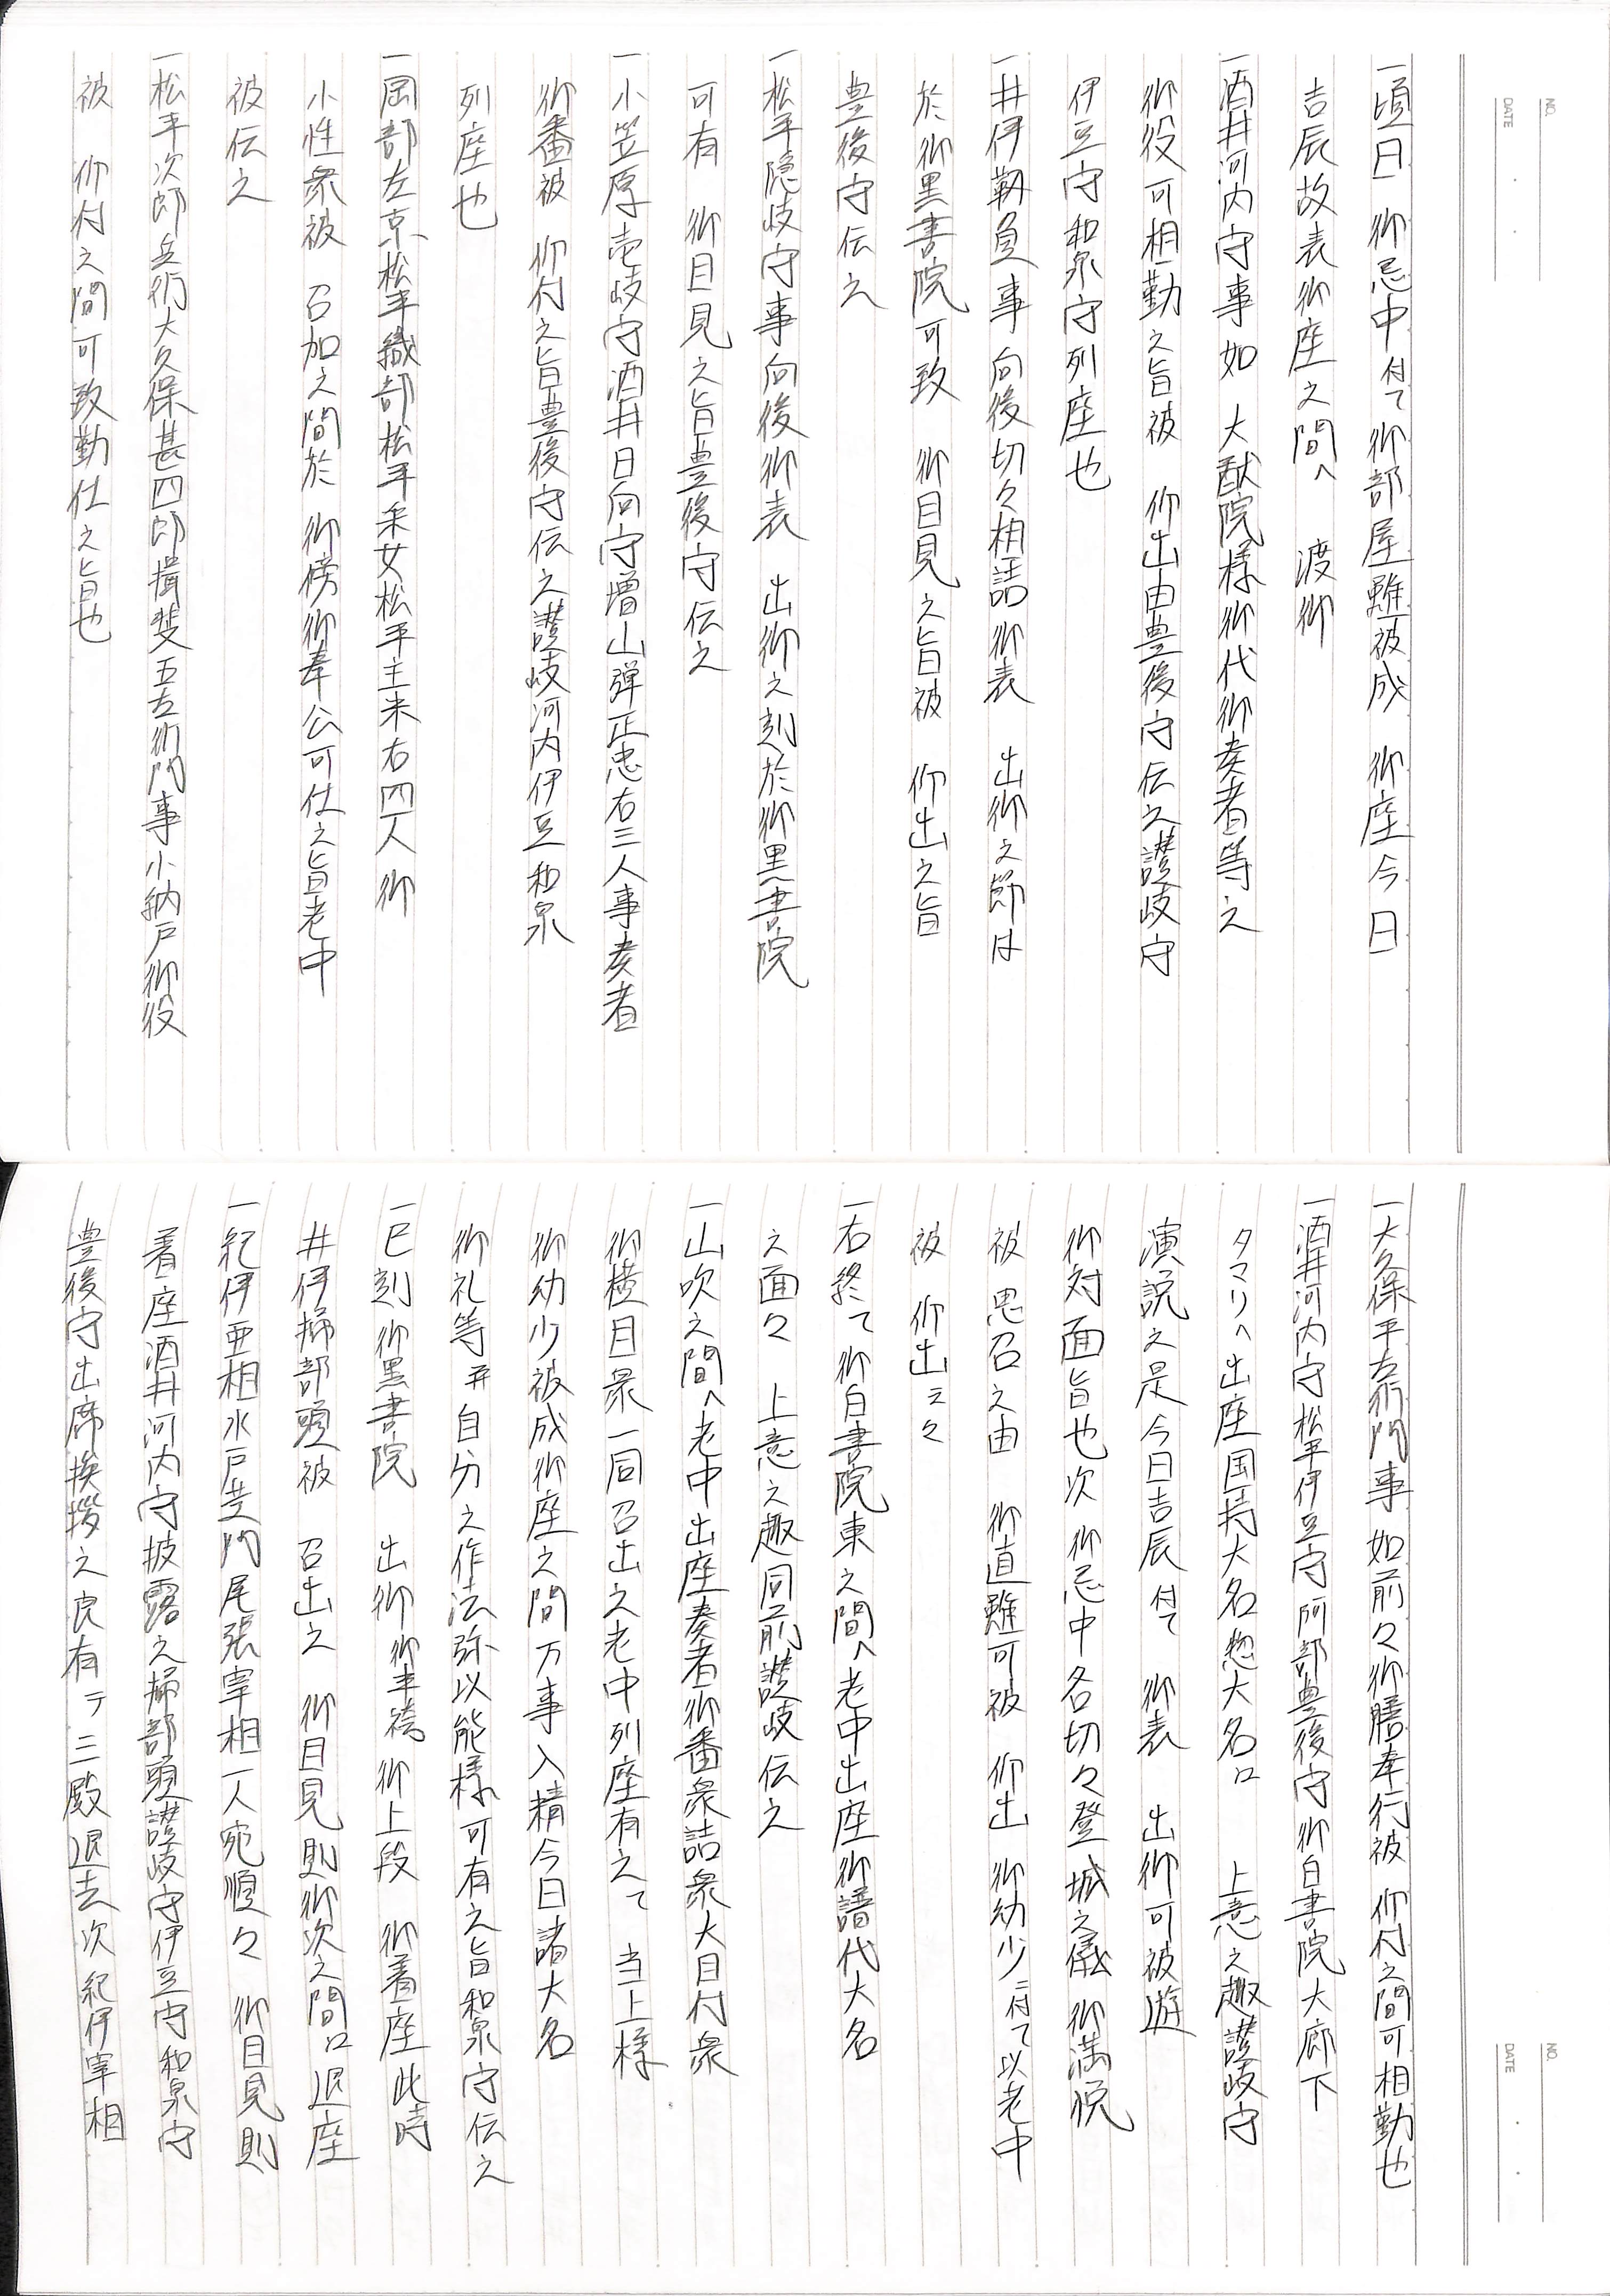 NO.
DATE
一頃日　御忌中付て御部屋雖被成　御座今日
吉辰故表御座之間へ　渡御
一酒井河内守事如　大猷院様御代御奏者等之
御役可相勤之旨被　仰出由豊後守伝之讃岐守
伊豆守和泉守列座也
一井伊靱負事向後切々相詰御表　出御之節は
於御黒書院可致　御目見之旨被　仰出之旨
豊後守伝之
一松平隠岐守事向後御表　出御之刻於御黒書院
可有　御目見之旨豊後守伝之
一小笠原壱岐守酒井日向守増山弾正忠右三人事奏者
御番被　仰付之旨豊後守伝之讃岐河内伊豆和泉
列座也
一岡部左京松平織部松平采女松平主米右四人　御
小性衆被　召加之間於　御傍御奉公可仕之旨老中
被伝之
一松平次郎兵衛大久保甚四郎揖斐五左衛門事小納戸御役
被　仰付之間可致勤仕之旨也
NO.
DATE
一大久保平左衛門事如前々御膳奉行被　仰付之間可相勤也
一酒井河内守松平伊豆守阿部豊後守御白書院大廊下
タマリへ出座国持大名惣大名口　上意之趣讃岐守
演説之是今日吉辰付て　御表　出御可被遊
御対面旨也次　御忌中各切々登城之儀　御満悦
被　思召之由　御直雖可被　仰出　御幼少ニ付て以老中
被　仰出云々
一右終て御白書院東之間へ老中出座御譜代大名
之面々　上意之趣同前讃岐伝之
一山吹之間へ老中出座奏者御番衆詰衆大目付衆
御横目衆一同召出之老中列座有之て　当上様
御幼少被成御座之間万事入精今日諸大名
御礼等并自分之作法弥以能様可有之旨和泉守伝之
一巳刻御黒書院　出御御半袴御上段　御着座此時
井伊掃部頭被　召出之　御目見則御次之間口退座
一紀伊亜相水戸黄門尾張宰相一人宛順々　御目見則
着座酒井河内守披露之掃部頭讃岐守伊豆守和泉守
豊後守出席挨拶之良有テ三殿退去次紀伊宰相